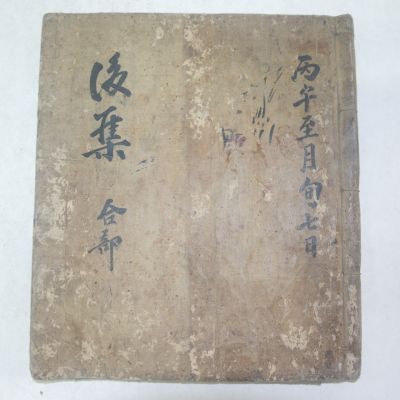 丙午至月旬七日
後集
合部